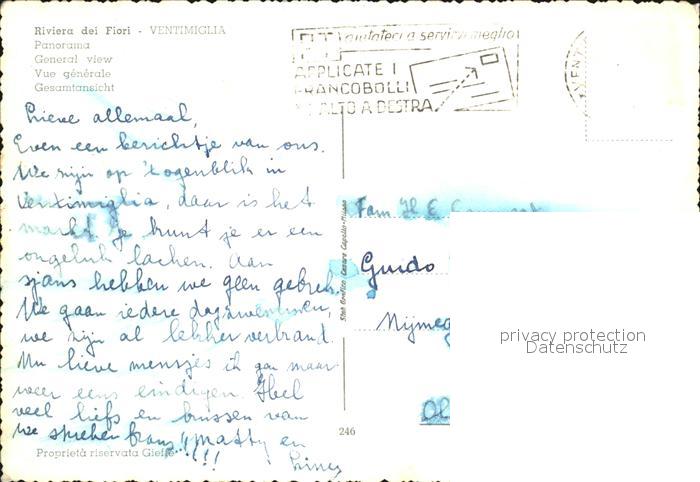 Riviera dei Fiori - VENTIMIGLIA
Panorama
General view
Vue générale
Gesamtansicht
aiutateci a servirvi meglio
APPLICATE I
FRANCOBOLLI
ALTO A DESTRA
Lieve allemaal,
Even een berichtje van ons.
We zijn op 't ogenblik in
Ventimiglia, daar is het
markt. Je kunt je er een
ongeluk lachen. Aan
sjans hebben we geen gebrek.
We gaan iedere dag zwemmen,
we zijn al lekker verbrand.
Nu lieve mensjes ik ga maar
weer eens eindigen. Heel
veel liefs en kussen van
we spreken frans!! Matty en
!!!
Fam. H. E.
Guido
Nijmeg
Stab. Grafico Cesare Capello - Milano
246
Proprietà riservata
privacy protection
Datenschutz